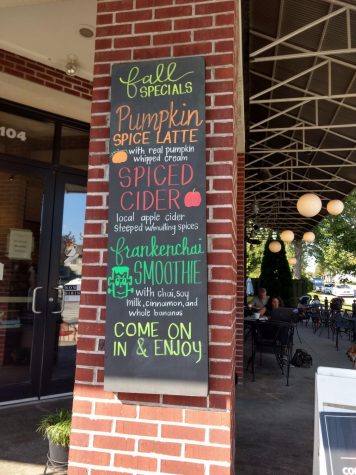 104
fall
SPECIALS
Pumpkin
SPICE LATTE
with real pumpkin
whipped cream
SPICED
CIDER
local apple cider
steeped w/mulling spices
frankenchai
SMOOTHIE
with chai, soy
milk, cinnamon, and
whole bananas
COME ON
IN & ENJOY